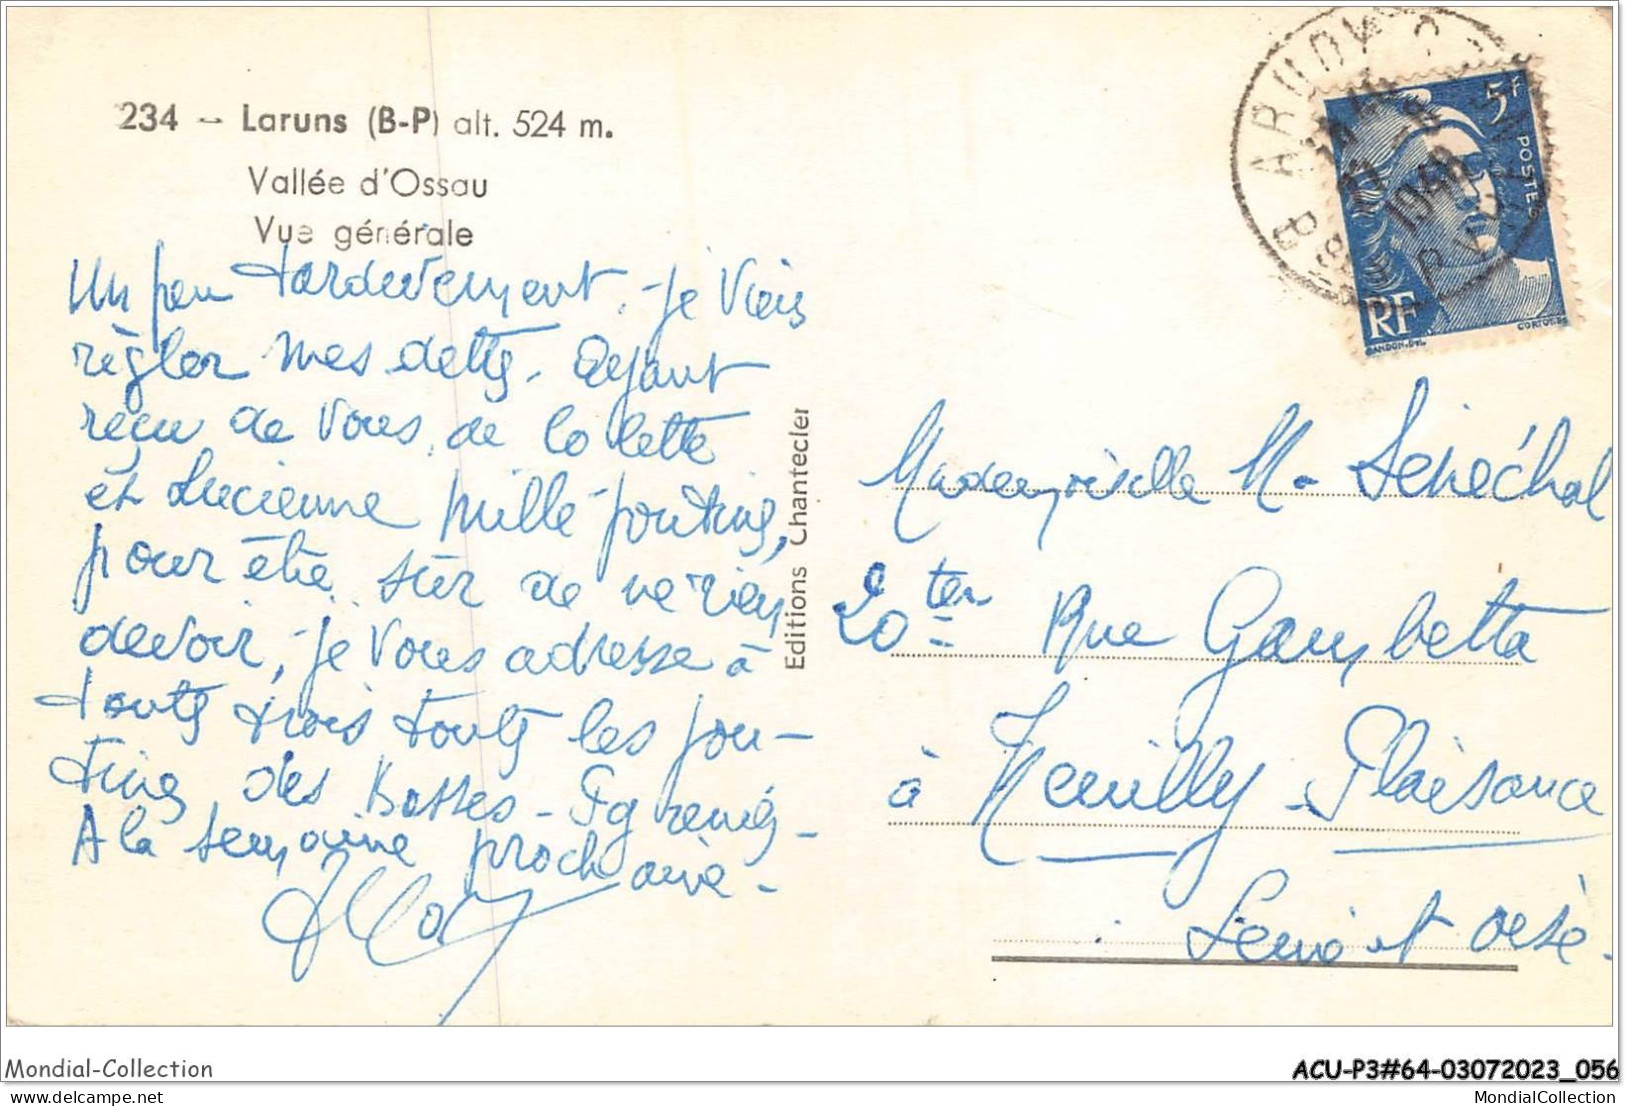 234 - Laruns (B-P) alt. 524 m.
Vallée d'Ossau
Vue générale
Un peu tardivement, je viens
règler mes dettes. Ayant
reçu de vous, de Colette
et Lucienne mille-pontins,
pour être sûr de ne rien
devoir, je vous adresse à
toutes trois toutes les pon-
tins des Bosses-
A la semaine prochaine-
Editions Chantecler
ARUDY
1948
5f
POSTES
RF
GANDON.Del.
CORTOT.SC
Mademoiselle M. Sénéchal
20 ter Rue Gambetta
à Neuilly-Plaisance
Seine et Oise.
Mondial-Collection
ACU-P3#64-03072023_056
MondialCollection